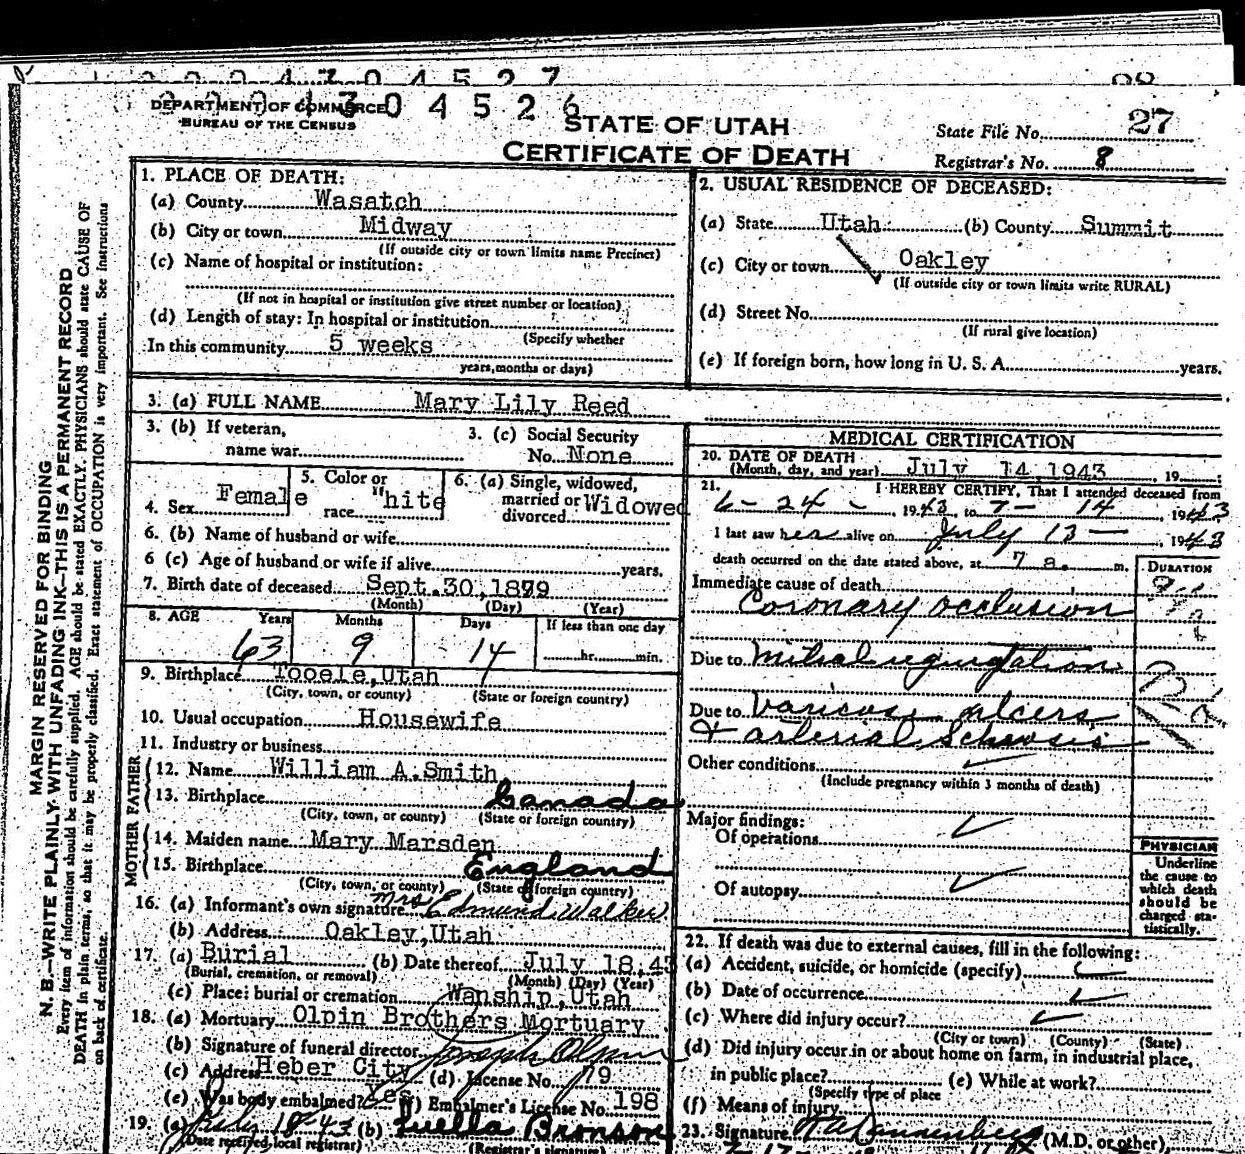 2 0 0 4 3 0 4 5 2 7
DEPARTMENT OF COMMERCE
BUREAU OF THE CENSUS
0 4 5 2 6
STATE OF UTAH
CERTIFICATE OF DEATH
State File No. 27
Registrar's No. 8
MARGIN RESERVED FOR BINDING
N. B.—WRITE PLAINLY WITH UNFADING INK—THIS IS A PERMANENT RECORD
Every item of information should be carefully supplied. AGE should be stated EXACTLY. PHYSICIANS should state CAUSE OF
DEATH in plain terms, so that it may be properly classified. Exact statement of OCCUPATION is very important. See instructions
on back of certificate.
1. PLACE OF DEATH:
(a) County Wasatch
(b) City or town Midway
(If outside city or town limits name Precinct)
(c) Name of hospital or institution:
(If not in hospital or institution give street number or location)
(d) Length of stay: In hospital or institution
(Specify whether
In this community 5 weeks
years, months or days)
2. USUAL RESIDENCE OF DECEASED:
(a) State Utah (b) County Summit
(c) City or town Oakley
(If outside city or town limits write RURAL)
(d) Street No.
(If rural give location)
(e) If foreign born, how long in U. S. A. years.
3. (a) FULL NAME Mary Lily Reed
3. (b) If veteran,
name war
3. (c) Social Security
No. None
4. Sex Female
5. Color or
race "hite
6. (a) Single, widowed,
married or
divorced Widowed
6. (b) Name of husband or wife
6 (c) Age of husband or wife if alive years.
7. Birth date of deceased Sept.30,1879
(Month) (Day) (Year)
8. AGE Years Months Days If less than one day
63 9 14 hr. min.
9. Birthplace Tooele,Utah
(City, town, or county) (State or foreign country)
10. Usual occupation Housewife
11. Industry or business
FATHER
12. Name William A.Smith
13. Birthplace Canada
(City, town, or county) (State or foreign country)
MOTHER
14. Maiden name Mary Marsden
15. Birthplace England
(City, town, or county) (State or foreign country)
16. (a) Informant's own signature Mrs Edmund Walker
(b) Address Oakley,Utah
17. (a) Burial (b) Date thereof July 18,43
(Burial, cremation, or removal) (Month) (Day) (Year)
(c) Place: burial or cremation Wanship,Utah
18. (a) Mortuary Olpin Brothers Mortuary
(b) Signature of funeral director Joseph Olpin
(c) Address Heber City (d) License No. 79
(e) Was body embalmed? Yes (f) Embalmer's License No. 198
19. (a) July 18-43 (b) Luella Bronson
(Date received local registrar) (Registrar's signature)
MEDICAL CERTIFICATION
20. DATE OF DEATH
(Month, day, and year) July 14,1943 , 19
21. I HEREBY CERTIFY, That I attended deceased from
6-24-, 1943, to 7-14, 1943
I last saw her alive on July 13-, 1943
death occurred on the date stated above, at 7 a. m.
DURATION
Immediate cause of death
Coronary occlusion
Due to mitral regurgitation
Due to Varicose ulcers
& arterial Sclerosis
Other conditions
(Include pregnancy within 3 months of death)
Major findings:
Of operations
Of autopsy
PHYSICIAN
Underline
the cause to
which death
should be
charged sta-
tistically.
22. If death was due to external causes, fill in the following:
(a) Accident, suicide, or homicide (specify)
(b) Date of occurrence
(c) Where did injury occur?
(City or town) (County) (State)
(d) Did injury occur in or about home on farm, in industrial place,
in public place? (e) While at work?
(Specify type of place
(f) Means of injury
23. Signature (M.D. or other)